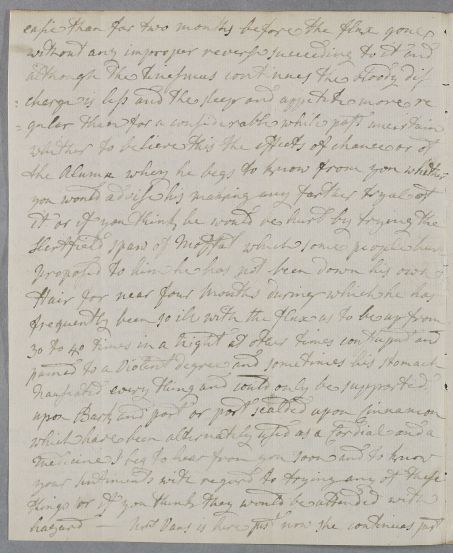 easie than for two months before the flux gone
without any improper reverse succeeding to it and
although the Tenesmus continues the bloody dis
=charge is less and the sleep and appetite more re
=gular than for a considerable while past uncertain
whether to believe this the effects of chance or of
the Alume when he begs to know from you whether
you would advise his making any farther tryal of
it or if you think he would be hurd by trying the
Hartfield spaw of Moffat which some people have
proposed to him he has not been down his own
stair for near four months during which he has
frequently been so ill with the flux as to be up from
30 to 40 times in a night at other times and
pained to a violent degree and sometimes his stomach
nauseated every thing and could only be supported
upon Bark and port or port scalded upon Cinnamon
which have been alternately used as a Cordial and a
Medicine I beg to hear from you soon and to know
your sentiments with regard to trying any of these
things or if you think they would be attended with
hazard — Mrs is here just now she continues just